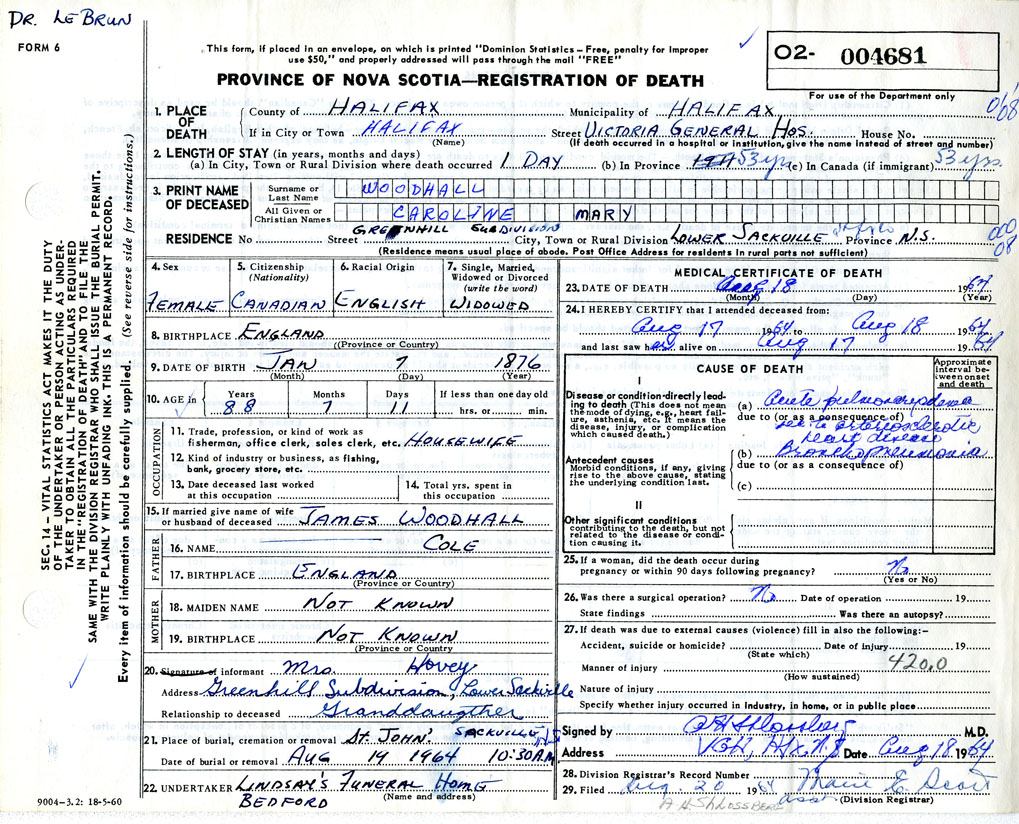 DR. LE BRUN
FORM 6
This form, if placed in an envelope, on which is printed "Dominion Statistics – Free, penalty for improper
use $50," and properly addressed will pass through the mail "FREE"
PROVINCE OF NOVA SCOTIA—REGISTRATION OF DEATH
02- 004681
For use of the Department only
068
1. PLACE OF DEATH County of HALIFAX Municipality of HALIFAX
If in City or Town HALIFAX Street VICTORIA GENERAL HOS. House No.
(Name) (If death occurred in a hospital or institution, give the name instead of street and number)
2. LENGTH OF STAY (in years, months and days)
(a) In City, Town or Rural Division where death occurred 1 DAY (b) In Province 53 yrs (c) In Canada (if immigrant) 53 yrs.
3. PRINT NAME OF DECEASED
Surname or Last Name WOODHALL
All Given or Christian Names CAROLINE MARY
RESIDENCE No. Street GREENHILL SUBDIVISION City, Town or Rural Division LOWER SACKVILLE Province N.S.
000
08
(Residence means usual place of abode. Post Office Address for residents in rural parts not sufficient)
SEC. 14 – VITAL STATISTICS ACT MAKES IT THE DUTY
OF THE UNDERTAKER OR PERSON ACTING AS UNDER-
TAKER TO OBTAIN ALL THE PARTICULARS REQUIRED
IN THE "REGISTRATION OF DEATH" AND TO FILE THE
SAME WITH THE DIVISION REGISTRAR WHO SHALL ISSUE THE BURIAL PERMIT.
WRITE PLAINLY WITH UNFADING INK. THIS IS A PERMANENT RECORD.
Every item of information should be carefully supplied. (See reverse side for instructions.)
4. Sex 5. Citizenship (Nationality) 6. Racial Origin 7. Single, Married, Widowed or Divorced (write the word)
FEMALE CANADIAN ENGLISH WIDOWED
8. BIRTHPLACE ENGLAND
(Province or Country)
9. DATE OF BIRTH JAN 7 1876
(Month) (Day) (Year)
10. AGE in Years Months Days If less than one day old
88 7 11 hrs. or min.
OCCUPATION
11. Trade, profession, or kind of work as
fisherman, office clerk, sales clerk, etc. HOUSEWIFE
12. Kind of industry or business, as fishing,
bank, grocery store, etc.
13. Date deceased last worked at this occupation
14. Total yrs. spent in this occupation
15. If married give name of wife or husband of deceased JAMES WOODHALL
FATHER
16. NAME COLE
17. BIRTHPLACE ENGLAND
(Province or Country)
MOTHER
18. MAIDEN NAME NOT KNOWN
19. BIRTHPLACE NOT KNOWN
(Province or Country)
20. Signature of informant Mrs. Hovey
Address Greenhill Subdivision, Lower Sackville
Relationship to deceased Granddaugther
21. Place of burial, cremation or removal ST. JOHN'. SACKVILLE NS
Date of burial or removal AUG 19 1964 10:30 A.M.
22. UNDERTAKER LINDSAY'S FUNERAL HOME
BEDFORD (Name and address)
9004–3.2: 18-5-60
MEDICAL CERTIFICATE OF DEATH
23. DATE OF DEATH Aug 18 1964
(Month) (Day) (Year)
24. I HEREBY CERTIFY that I attended deceased from:
Aug 17 1964 to Aug 18 1964
and last saw her alive on Aug 17 1964
CAUSE OF DEATH
Approximate interval between onset and death
I
Disease or condition directly lead-
ing to death (This does not mean
the mode of dying, e.g., heart fail-
ure, asthenia, etc. It means the
disease, injury, or complication
which caused death.)
(a) Acute pulmonary edema
due to (or as a consequence of)
sec. to arteriosclerotic
heart disease
Antecedent causes
Morbid conditions, if any, giving
rise to the above cause, stating
the underlying condition last.
(b) Bronchopneumonia
due to (or as a consequence of)
(c)
II
Other significant conditions
contributing to the death, but not
related to the disease or condi-
tion causing it.
25. If a woman, did the death occur during
pregnancy or within 90 days following pregnancy? No
(Yes or No)
26. Was there a surgical operation? No Date of operation 19
State findings Was there an autopsy?
27. If death was due to external causes (violence) fill in also the following:–
Accident, suicide or homicide? Date of injury 19
(State which)
420.0
Manner of injury
(How sustained)
Nature of injury
Specify whether injury occurred in industry, in home, or in public place
Signed by M.D.
Address VGH, Hfx. N.S Date Aug 18 1964
28. Division Registrar's Record Number
29. Filed Aug. 20 1964 Marie E. Scott
asst. (Division Registrar)
A H SHLOSSBERG